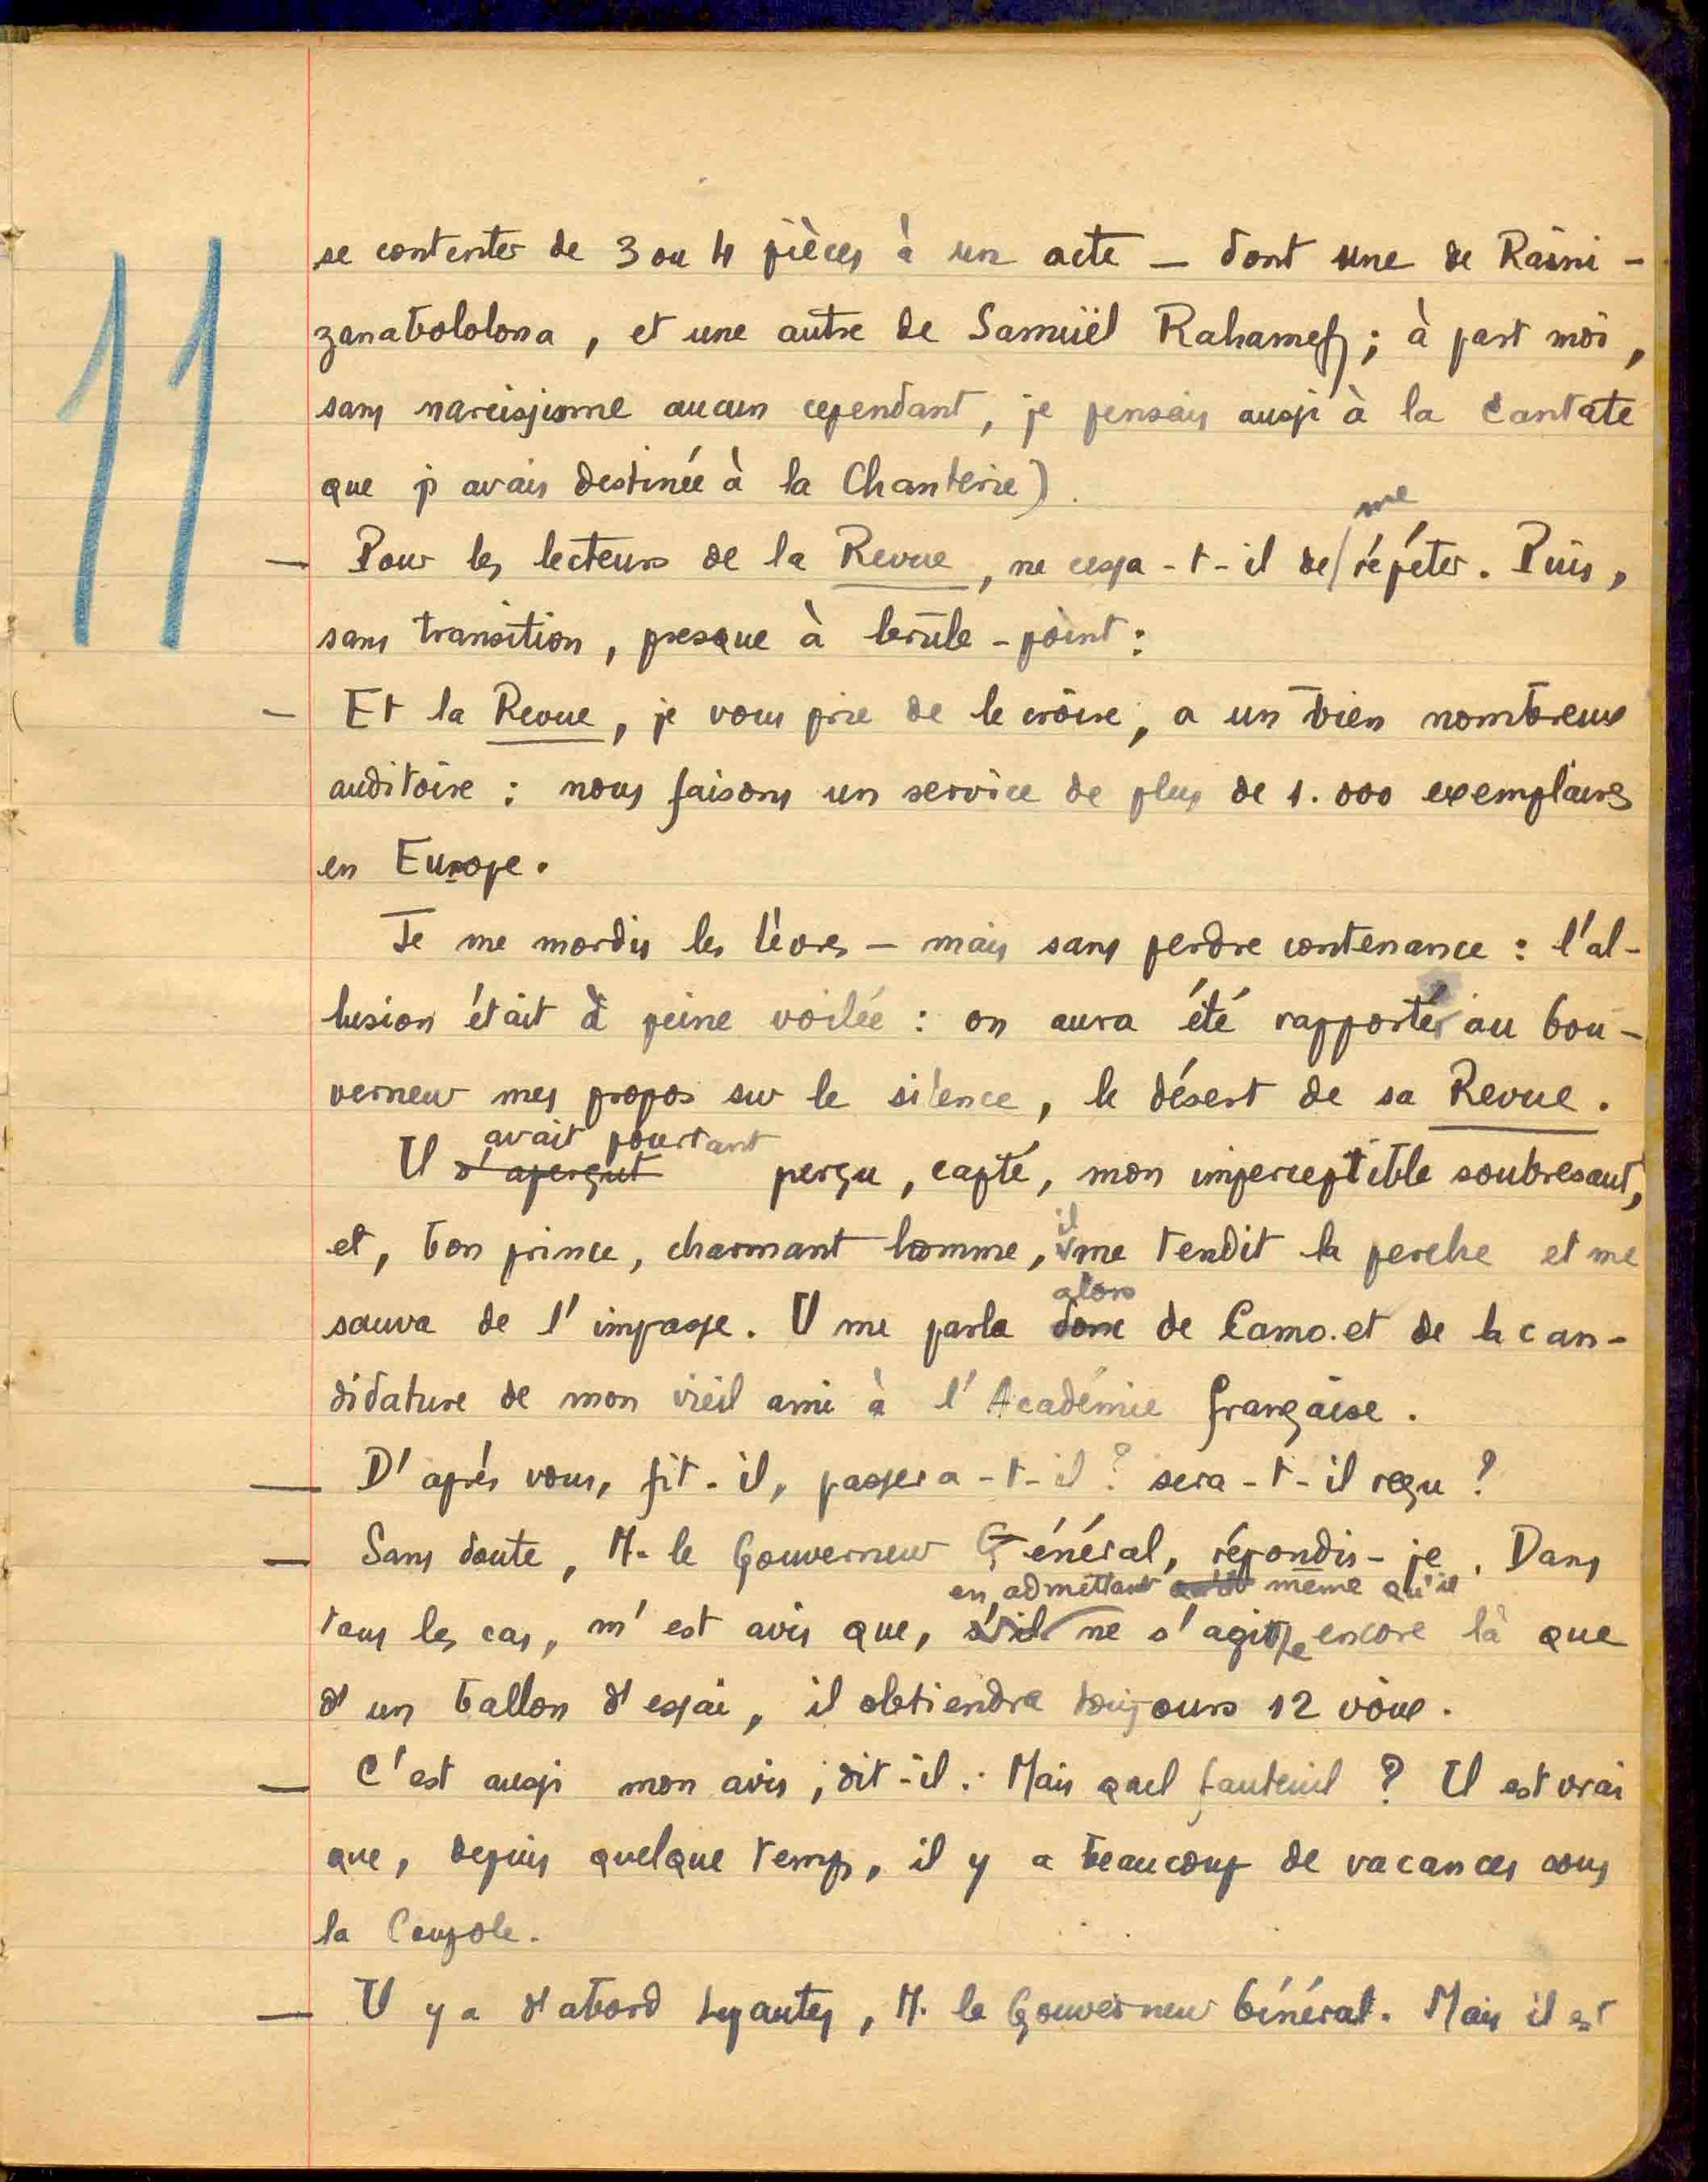 11
se contenter de 3 ou 4 pièces à un acte — dont une de Raini-
zanabololona, et une autre de Samuël Rahamefy ; à part moi,
sans narcissisme aucun cependant, je pensais aussi à la Cantate
que j'avais destinée à la Chanterie).
me
— Pour les lecteurs de la Revue, ne cessa-t-il de/répéter. Puis,
sans transition, presque à brûle-point :
— Et la Revue, je vous prie de le croire, a un bien nombreux
auditoire : nous faisons un service de plus de 1.000 exemplaires
en Europe.
Je me mordis les lèvres — mais sans perdre contenance : l'al-
lusion était à peine voilée : on aura été rapporter au Gou-
verneur mes propos sur le silence, le désert de sa Revue.
avait pourtant
Il s'aperçut perçu, capté, mon imperceptible soubresaut,
il
et, bon prince, charmant homme, me tendit la perche et me
alors
sauva de l'impasse. Il me parla donc de Camo. et de la can-
didature de mon vieil ami à l'Académie française.
— D'après vous, fit-il, passera-t-il ? sera-t-il reçu ?
— Sans doute, M. le Gouverneur Général, répondis-je. Dans
en admettant même qu'il
tous les cas, m'est avis que, s'il ne s'agisse encore là que
d'un ballon d'essai, il obtiendra toujours 12 voix.
— C'est aussi mon avis, dit-il. Mais quel fauteuil ? Il est vrai
que, depuis quelque temps, il y a beaucoup de vacances sous
la Coupole.
— Il y a d'abord Lyautey, M. le Gouverneur Général. Mais il est